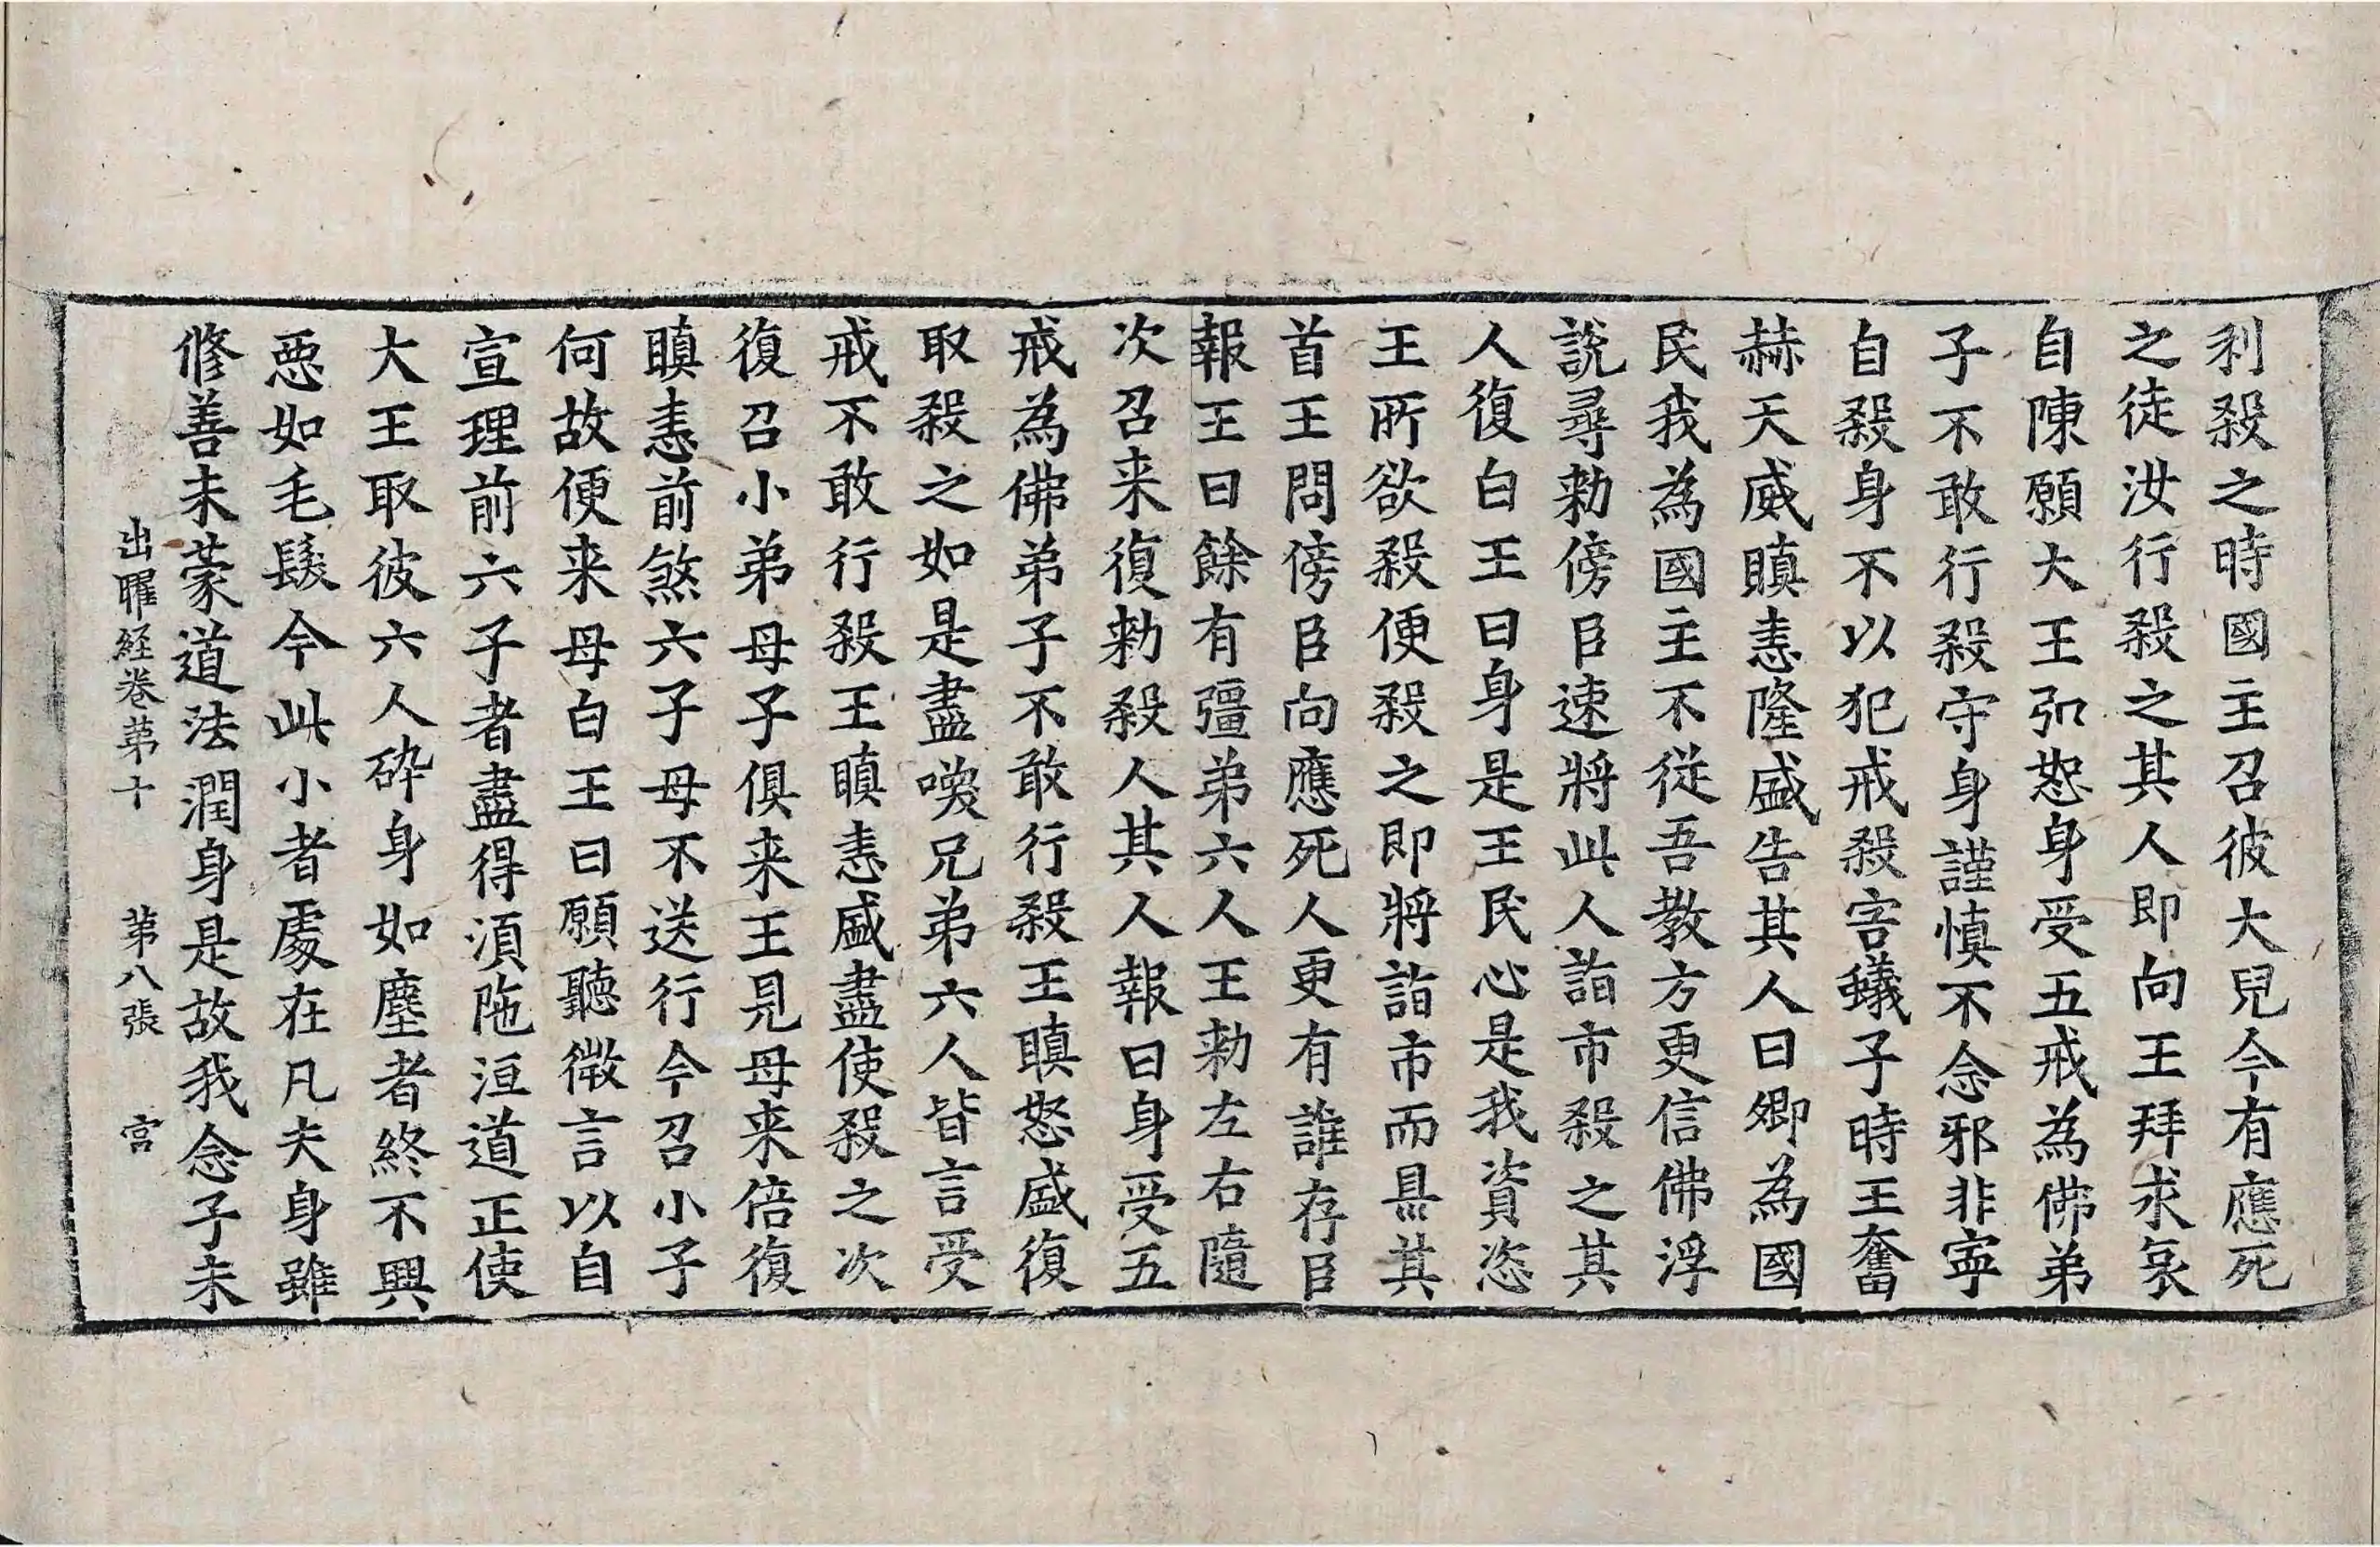 利殺之時國主召彼大兒今有應死
之徒汝行殺之其人即向王拜求哀
自陳願大王弘恕身受五戒為佛弟
子不敢行殺守身謹慎不念邪非寜
自殺身不以犯戒殺害蟻子時王奮
赫天威瞋恚隆盛告其人曰卿為國
民我為國主不從吾教方更信佛浮
說尋勑傍臣速將此人詣市殺之其
人復白王曰身是王民心是我資恣
王所欲殺便殺之即將詣市而梟其
首王問傍臣向應死人更有誰存臣
報王曰餘有彊弟六人王勑左右隨
次召来復勑殺人其人報曰身受五
戒為佛弟子不敢行殺王瞋怒盛復
取殺之如是盡喚兄弟六人皆言受
戒不敢行殺王瞋恚盛盡使殺之次
復召小弟母子俱来王見母来倍復
瞋恚前煞六子母不送行今召小子
何故便来母白王曰願聽微言以自
宣理前六子者盡得湏陁洹道正使
大王取彼六人碎身如塵者終不興
惡如毛髮今此小者處在凡夫身雖
修善未蒙道法潤身是故我念子未
出曜経卷苐十 苐八張 宫